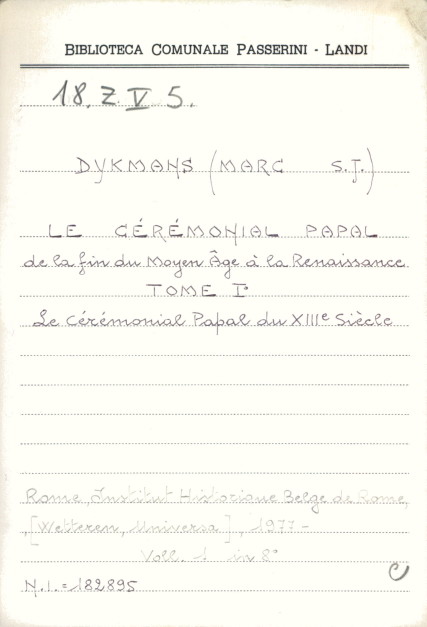 BIBLIOTECA COMUNALE PASSERINI - LANDI
18. Z V 5.
DYKMANS (MARC S.J.)
LE CÉRÉMONIAL PAPAL
de la fin du Moyen Âge à la Renaissance
TOME I°
Le Cérémonial Papal du XIIIe Siècle
Rome, Institut Historique Belge de Rome,
, [Wetteren, Universa], 1977 -
Voll. 1 in 8°
N.I. = 182895